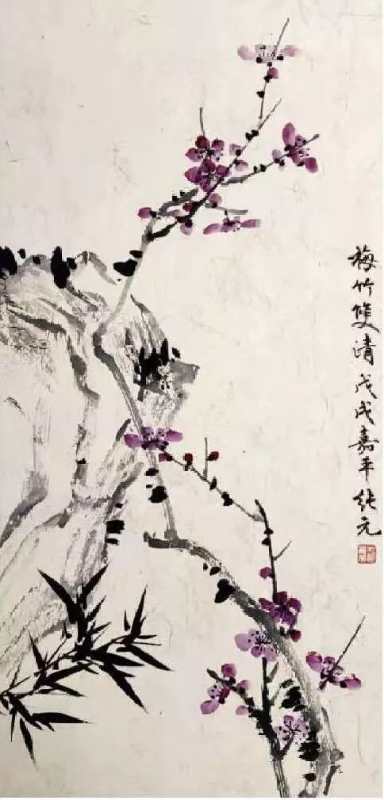 梅竹雙清戊戌嘉平純元